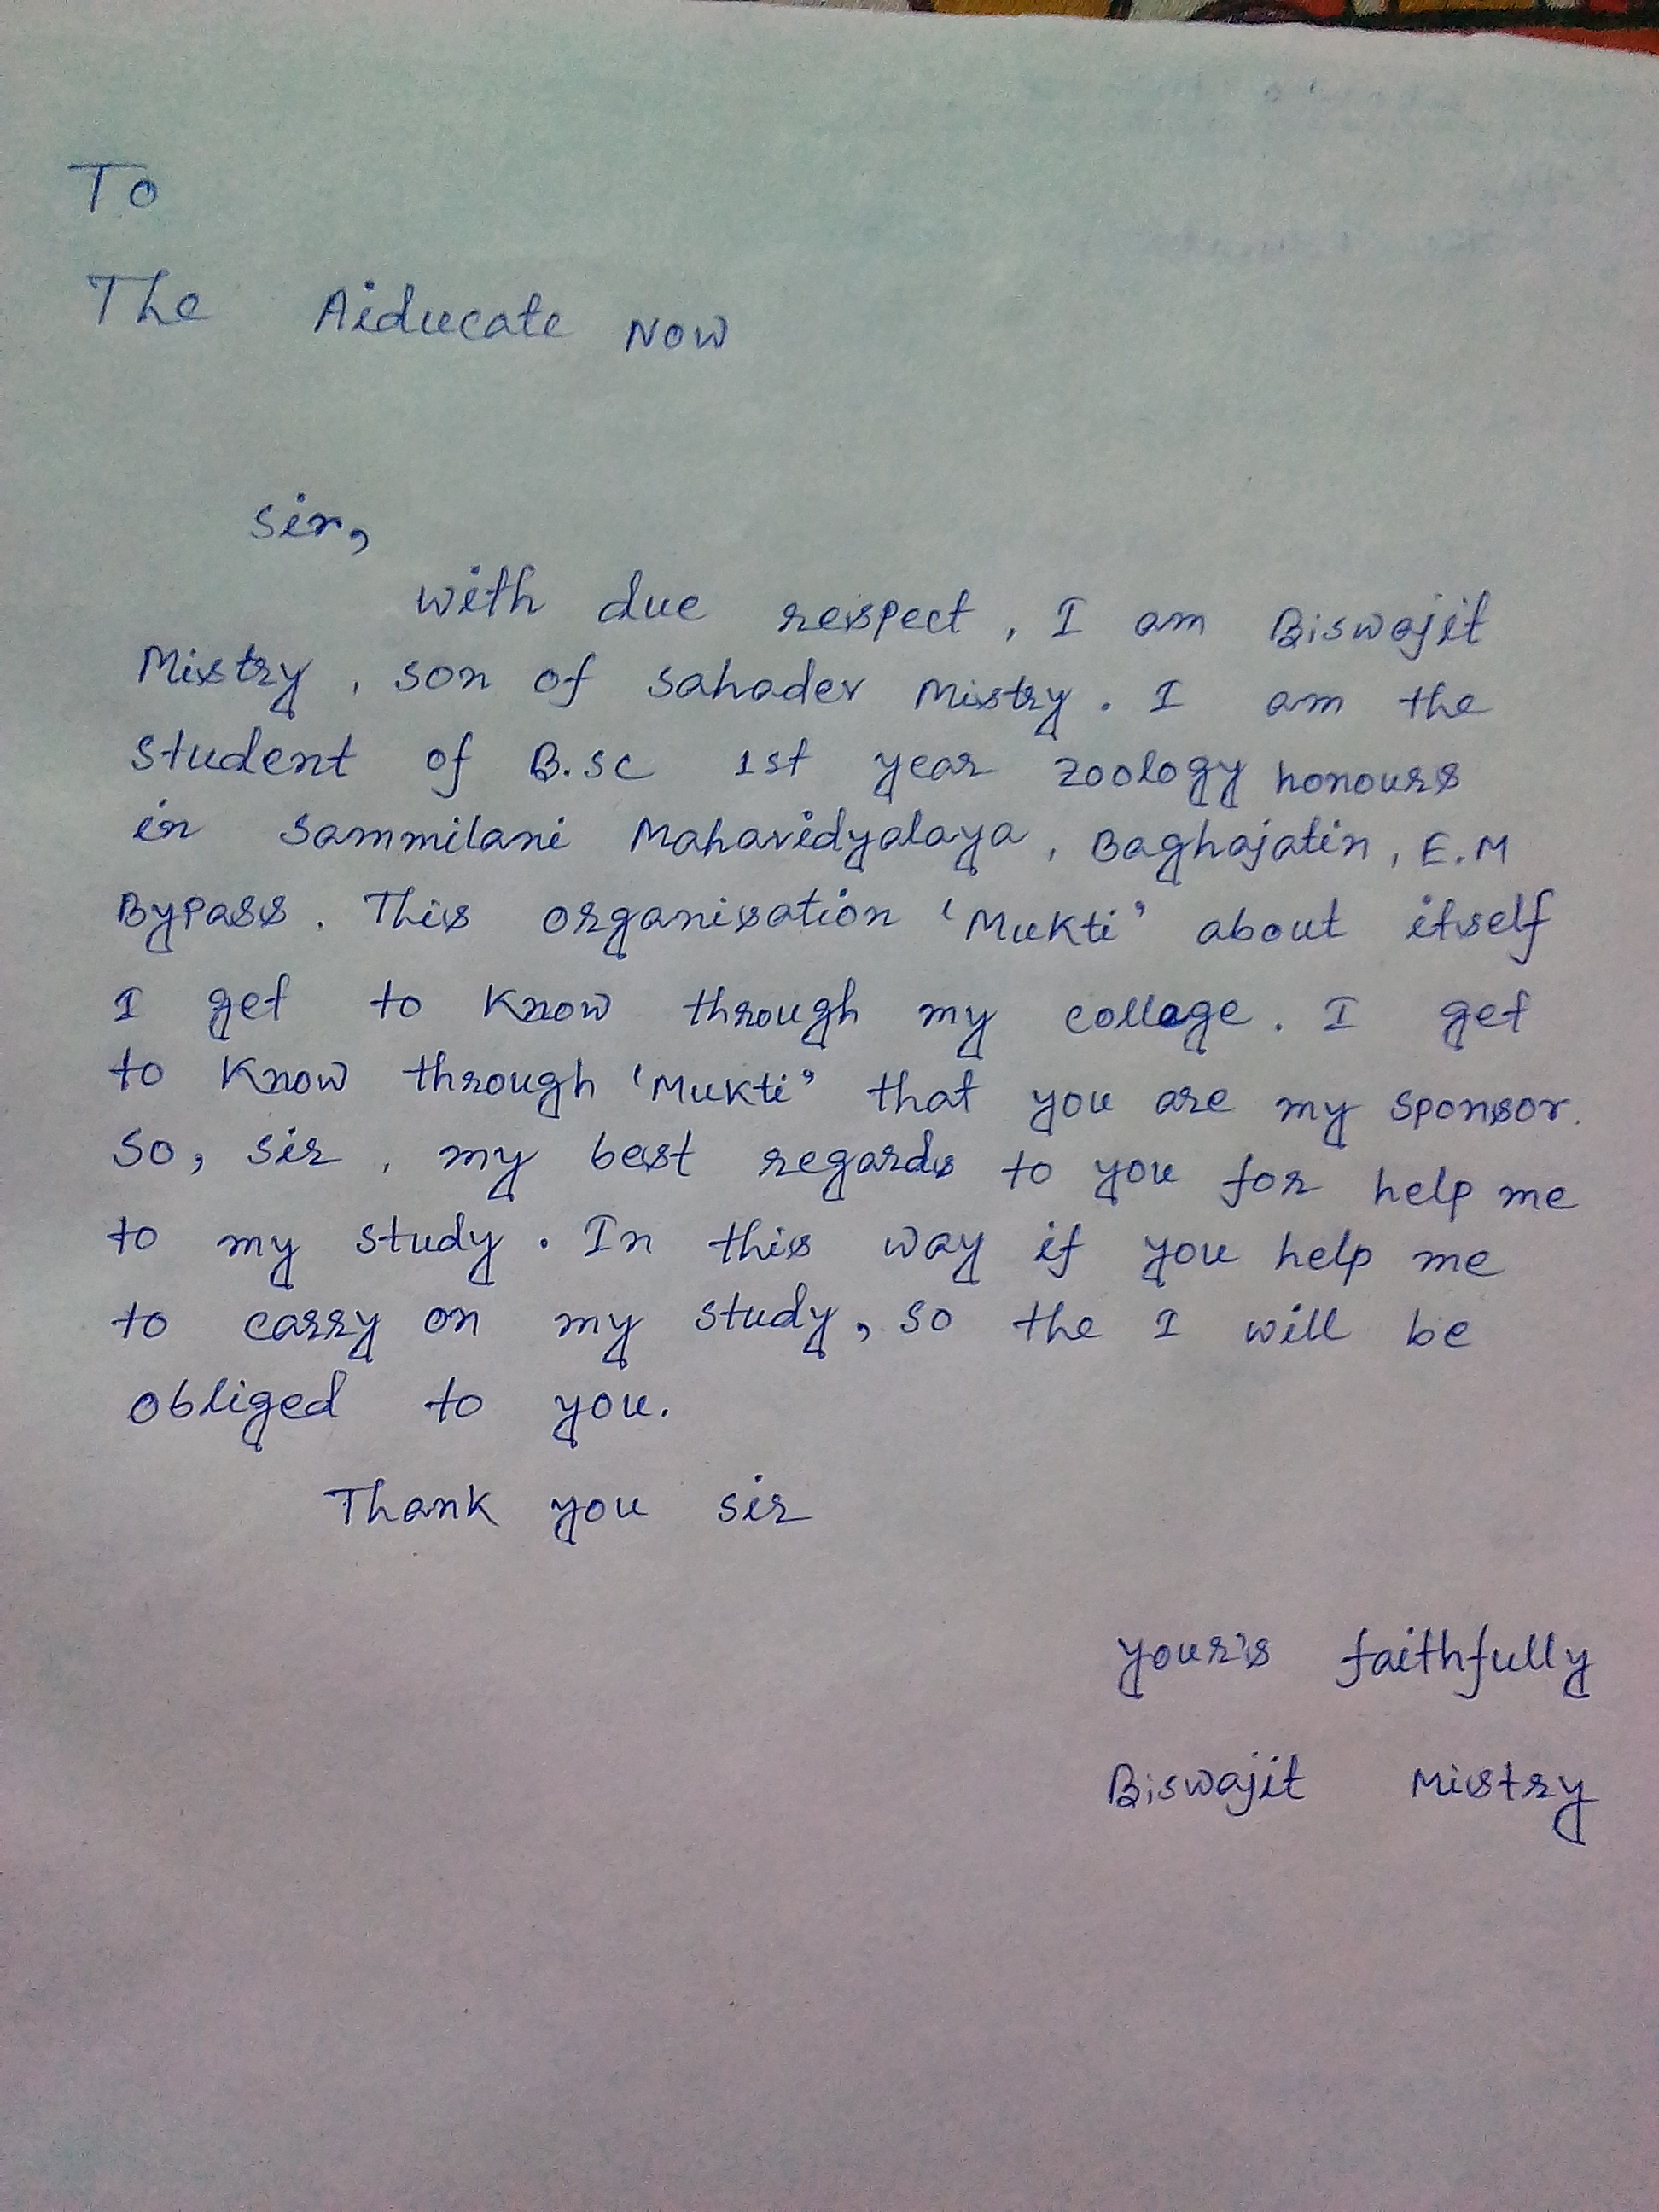 To
The Aiducate Now
Sir,
with due respect, I am Biswajit
Mistry, son of Sahadev Mistry. I am the
Student of B.sc 1st year zoology honours
in Sammilani Mahavidyalaya, Baghajatin, E.M
Bypass. This organisation 'Mukti' about itself
I get to know through my collage. I get
to know through 'Mukti' that you are my sponsor.
So, sir, my best regards to you for help me
to my study. In this way if you help me
to carry on my study, so the I will be
obliged to you.
Thank you sir
your's faithfully
Biswajit Mistry